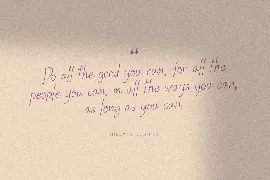 “
Do all the good you can, for all the
people you can, in all the ways you can,
as long as you can.